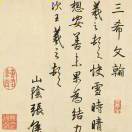 三希文翰
羲之頓首快雪時晴
想安善未果為結力
次王羲之頓首
山陰張侯